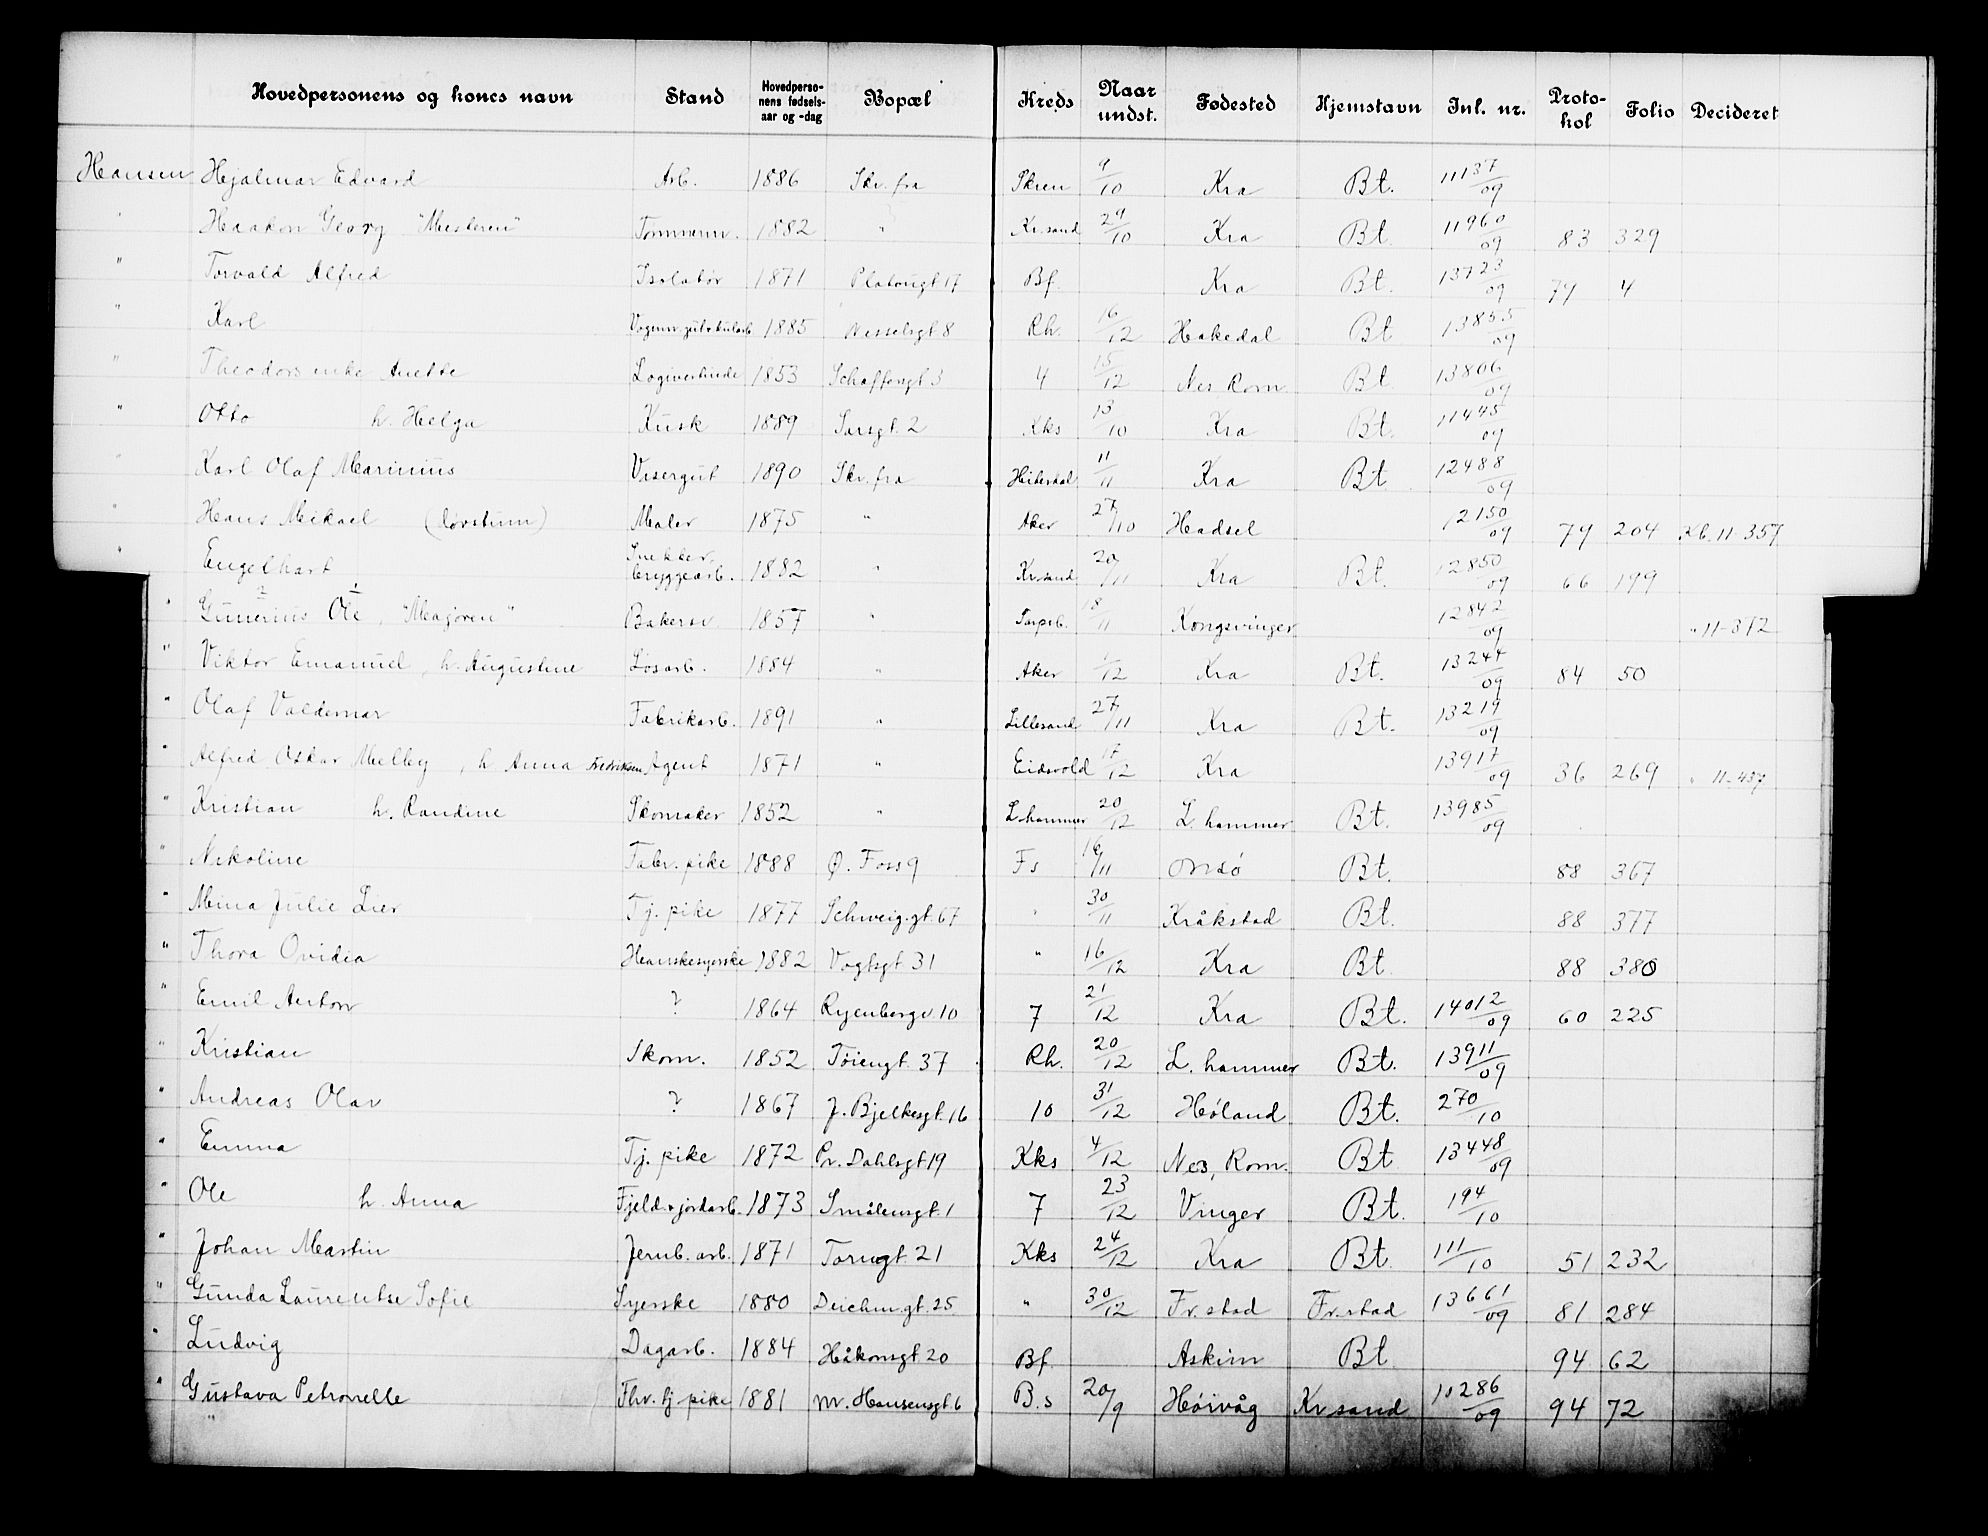 Hovedpersonens og kones navn Stand Hovedpersonens fødselsaar og -dag Bopæl Kreds Naar undst. Fødested Hjemstavn Inl. nr. Protokol Folio Decideret
Hansen Hjalmar Edvard Arb. 1886 Skr. fra Skien 9/10 Kra Bt. 11137/09
" Haakon Georg "Mesteren" Tømmerm. 1882 " Kr.sand 29/10 Kra Bt 11960/09 83 329
" Torvald Alfred Isolatør 1871 Platougt 17 Bf. Kra Bt. 13723/09 79 4
" Karl 1885 Nesselsgt 8 Rh. 16/12 Hakedal Bt 13855/09
" Anette Logivertinde 1853 Schaffengt 3 4 15/12 Nes, Rom. Bt 13806/09
" Otto h. Helga Kusk 1889 Sarsgt. 2 Kks 13/10 Kra Bt. 11445/09
" Karl Olaf Marinius Visergut 1890 Skr. fra Hitterdal 11/11 Kra Bt 12488/09
" Hans Mikael (Løvstum) Maler 1875 " Aker 27/10 Hadsel 12150/09 79 204 Kb. 11-357
" Engelhart Snekker, bryggearb. 1882 " Kr.sand 20/11 Kra Bt. 12850/09 66 199
" Gunerius Ole, "Majoren" Bakersv. 1857 " Tarpsb. 18/11 Kongsvinger 12842/09 " 11-312
" Viktor Emanuel, h. Augustine Løsarb. 1884 " Aker 1/12 Kra Bt. 13244/09 84 50
" Olaf Valdemar Fabrikarb. 1891 " Lillesand 27/11 Kra Bt. 13219/09
" Alfred Oskar Melby, h. Anna Fredriksen Agent 1871 " Eidsvold 17/12 Kra 13917/09 36 269 " 11-457
" Kristian h. Randine Skomaker 1852 " L.hammer 20/12 L. hammer Bt. 13985/09
" Nikoline Fabr. pike 1888 Ø. Foss 9 Fs 16/11 Onsø Bt. 88 367
" Mina Julie Lier Tj. pike 1877 Schweig.gt. 67 " 30/11 Kråkstad Bt. 88 377
" Thora Ovidia Hanskesyerske 1882 Vogtsgt 31 " 16/12 Kra Bt 88 380
" Emil Anton ? 1864 Ryenbergv. 10 7 21/12 Kra Bt. 14012/09 60 225
" Kristian Skom. 1852 Tøiengt. 37 Rh. 20/12 L. hammer Bt. 13911/09
" Andreas Olav ? 1867 J. Bjelkesgt. 16 10 31/12 Høland Bt. 270/10
" Emma Tj. pike 1872 Pr. Dahlsgt 19 Kks 4/12 Nes, Rom. Bt 13448/09
" Ole h. Anna Fjeld & jordarb. 1873 Smålensgt. 1 7 23/12 Vinger Bt. 194/10
" Johan Martin Jernb. arb. 1871 Torvgt. 21 Kks 24/12 Kra Bt 111/10 51 232
" Gunda Laurentse Sofie Syerske 1880 Deichm.gt. 25 " 30/12 Fr.stad Fr.stad 13661/09 81 284
" Ludvig Dagarb. 1884 Håkonsgt 20 Bf. Askim Bt 94 62
" Gustava Petronelle Fhv. tj pike 1881 M. Hansensgt 6 B.s 20/9 Høivåg Kr.sand 10286/09 94 72
"